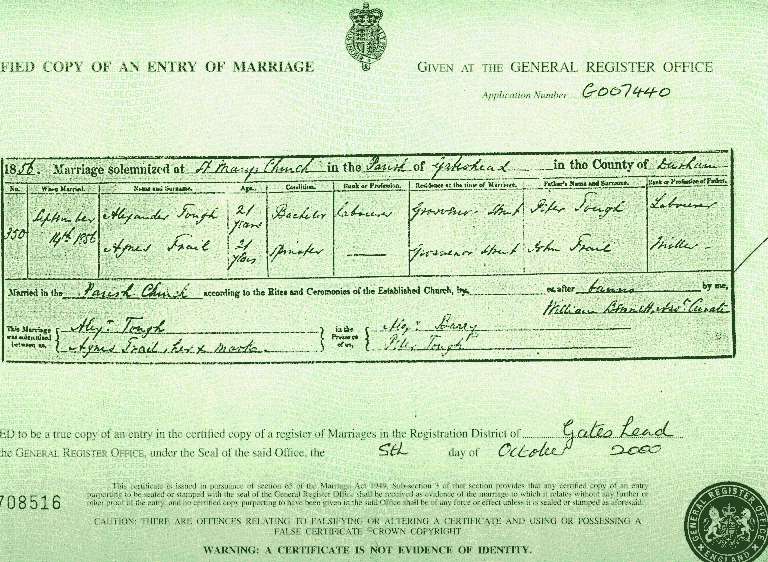 FIED COPY OF AN ENTRY OF MARRIAGE
GIVEN AT THE GENERAL REGISTER OFFICE
Application Number G007440
1856. Marriage solemnized at St Mary's Church in the Parish of Gateshead in the County of Durham
No. When Married. Name and Surname. Age. Condition. Rank or Profession. Residence at the time of Marriage. Father's Name and Surname. Rank or Profession of Father.
350 September 14th 1856 Alexander Tough 21 years Bachelor Labourer Grosvenor Street Peter Tough Labourer
Agnes Trail 21 years Spinster — Grosvenor Street John Trail Miller
Married in the Parish Church according to the Rites and Ceremonies of the Established Church, by, or after banns by me,
William Asst Curate
This Marriage was solemnized between us, { Alexr Tough } in the Presence of us, { Alexr Barry
Agnes Trail, her x mark Peter Tough
ED to be a true copy of an entry in the certified copy of a register of Marriages in the Registration District of Gateshead
the GENERAL REGISTER OFFICE, under the Seal of the said Office, the 5th day of October 2000
708516
This certificate is issued in pursuance of section 65 of the Marriage Act 1949. Sub-section 3 of that section provides that any certified copy of an entry
purporting to be sealed or stamped with the seal of the General Register Office shall be received as evidence of the marriage to which it relates without any further or
other proof of the entry, and no certified copy purporting to have been given in the said Office shall be of any force or effect unless it is sealed or stamped as aforesaid.
CAUTION: THERE ARE OFFENCES RELATING TO FALSIFYING OR ALTERING A CERTIFICATE AND USING OR POSSESSING A
FALSE CERTIFICATE ©CROWN COPYRIGHT
WARNING: A CERTIFICATE IS NOT EVIDENCE OF IDENTITY.
GENERAL REGISTER OFFICE ENGLAND